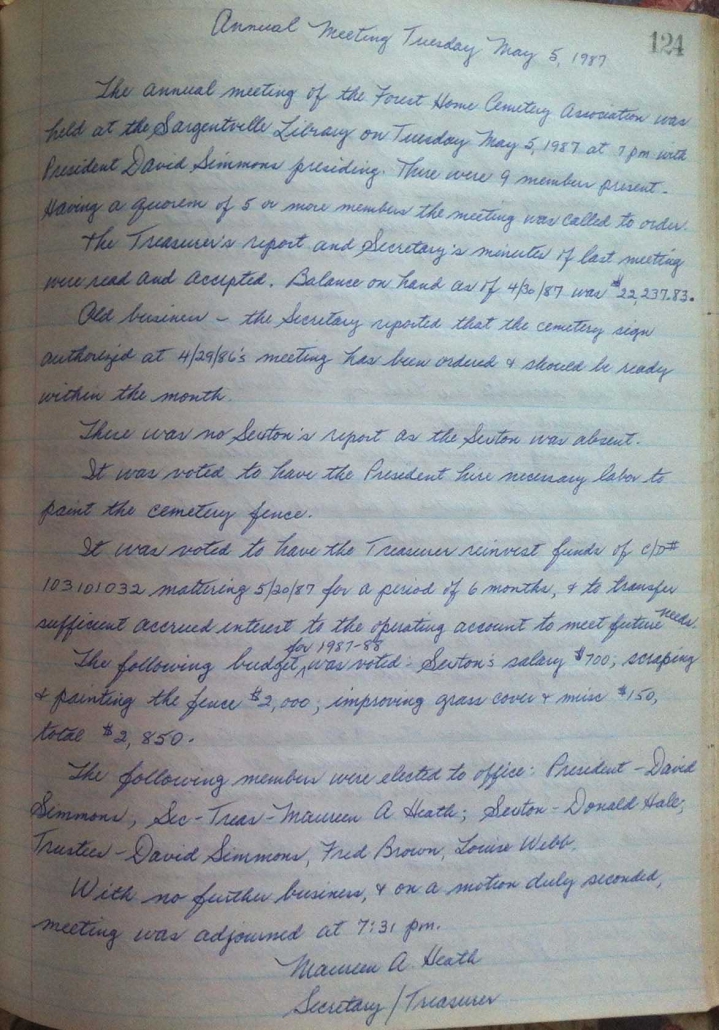 Annual Meeting Tuesday May 5, 1987
124
The annual meeting of the Forest Home Cemetery Association was
held at the Sargentville Library on Tuesday May 5, 1987 at 7 pm with
President David Simmons presiding. There were 9 members present.
Having a quorem of 5 or more members the meeting was called to order.
The Treasurer's report and Secretary's minutes of last meeting
were read and accepted. Balance on hand as of 4/30/87 was $22,237.83.
Old business - the Secretary reported that the cemetery sign
authorized at 4/29/86's meeting has been ordered & should be ready
within the month.
There was no Sexton's report as the Sexton was absent.
It was voted to have the President hire necessary labor to
paint the cemetery fence.
It was voted to have the Treasurer reinvest funds of C/D#
103101032 mattering 5/20/87 for a period of 6 months, & to transfer
sufficient accrued interest to the operating account to meet future needs.
for 1987-88
The following budget, was voted: Sexton's salary $700; scraping
& painting the fence $2,000; improving grass cover & misc $150,
total $2,850.
The following members were elected to office: President - David
Simmons, Sec-Treas - Maureen A Heath; Sexton - Donald Hale;
Trustees - David Simmons, Fred Brown, Louise Webb.
With no further business, & on a motion duly seconded,
meeting was adjourned at 7:31 pm.
Maureen A. Heath
Secretary/Treasurer